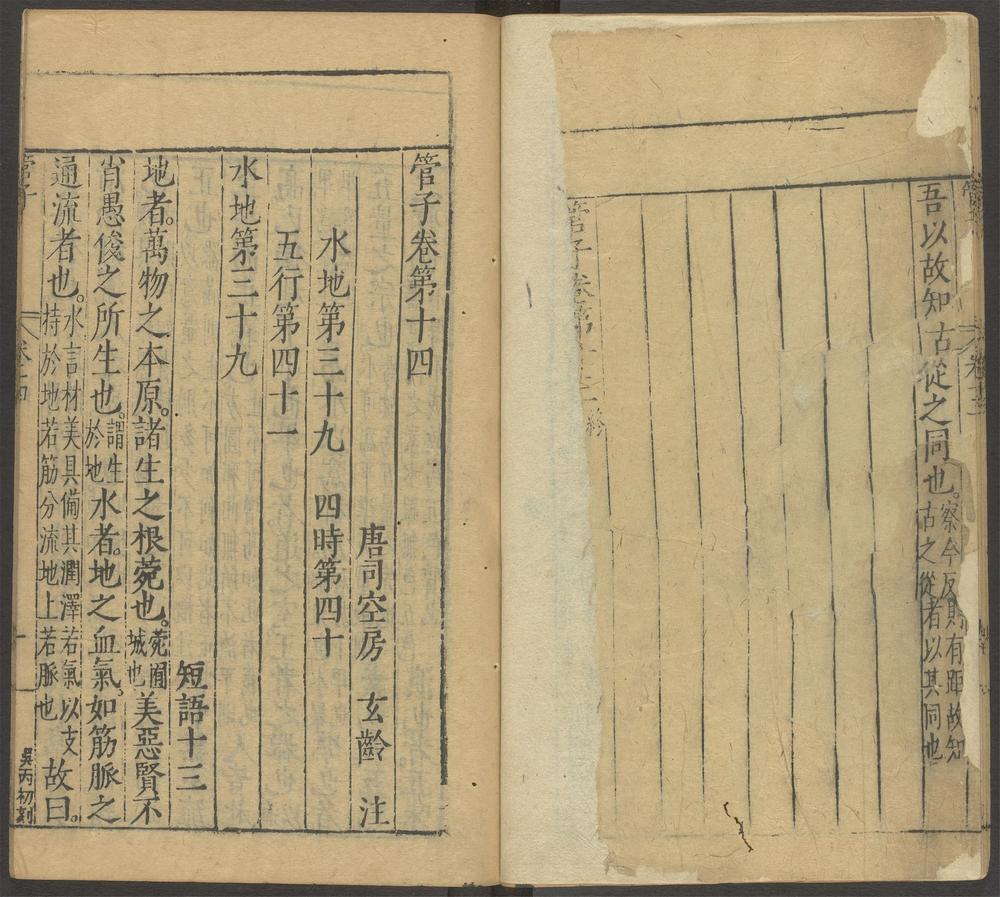 管子 卷十三
吾以故知古從之同也。察今反則有距故知古之從者以其同也
管子卷第十三終
管子卷第十四
唐司空房 玄齡 注
水地第三十九 四時第四十
五行第四十一
水地第三十九
短語十三
地者。萬物之本原。諸生之根菀也。菀囿城也美惡賢不
肖愚俊之所生也。謂生於地水者。地之血氣。如筋脈之
通流者也。水言材美具備其潤澤若氣以支持於地若筋分流地上若脈也故曰。
管子 卷十四 一 吳丙初刻